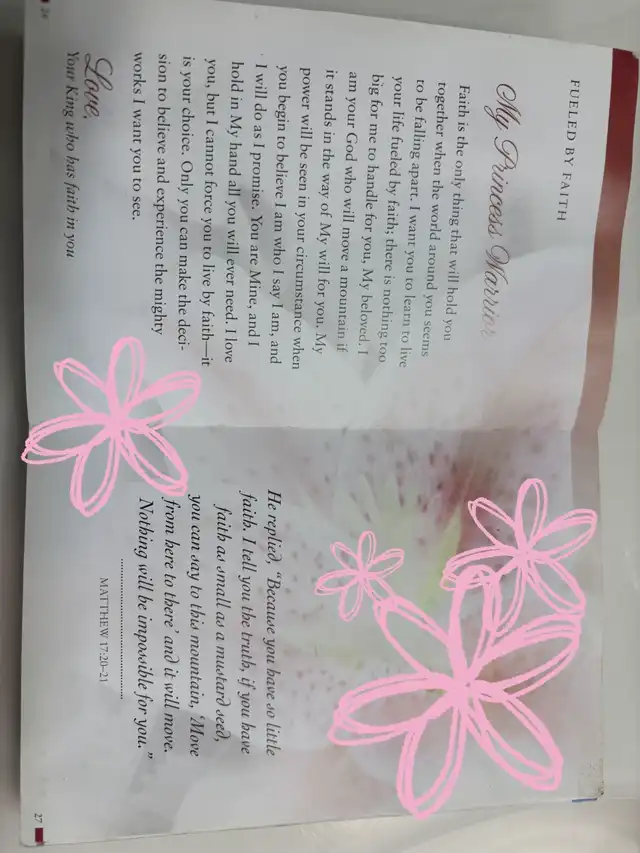 FUELED BY FAITH
My Princess Warrior
Faith is the only thing that will hold you
together when the world around you seems
to be falling apart. I want you to learn to live
your life fueled by faith; there is nothing too
big for me to handle for you, My beloved. I
am your God who will move a mountain if
it stands in the way of My will for you. My
power will be seen in your circumstance when
you begin to believe I am who I say I am, and
I will do as I promise. You are Mine, and I
hold in My hand all you will ever need. I love
you, but I cannot force you to live by faith—it
is your choice. Only you can make the deci-
sion to believe and experience the mighty
works I want you to see.
Love,
Your King who has faith in you
26
He replied, “Because you have so little
faith. I tell you the truth, if you have
faith as small as a mustard seed,
you can say to this mountain, ‘Move
from here to there’ and it will move.
Nothing will be impossible for you.”
MATTHEW 17:20–21
27